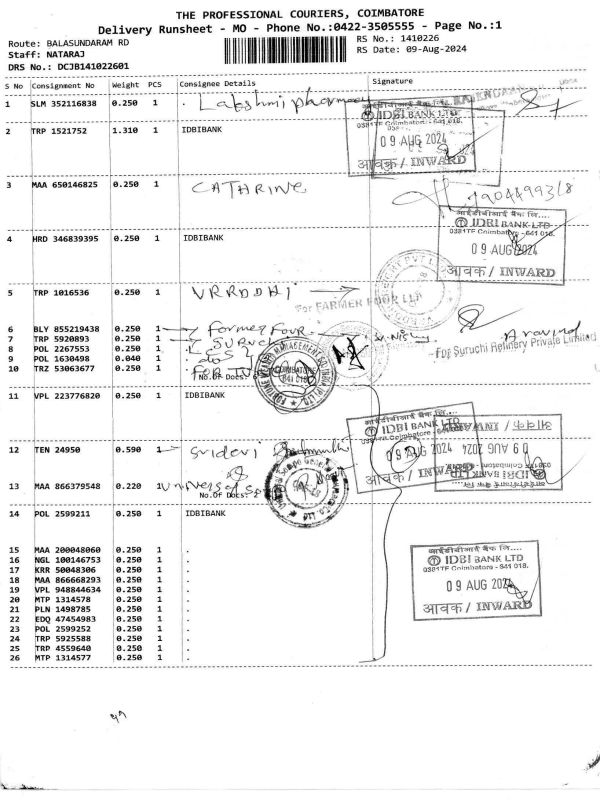 THE PROFESSIONAL COURIERS, COIMBATORE
Delivery Runsheet - MO - Phone No.:0422-3505555 - Page No.:1
Route: BALASUNDARAM RD
RS No.: 1410226
Staff: NATARAJ
RS Date: 09-Aug-2024
DRS No.: DCJB141022601
S No Consignment No Weight PCS Consignee Details Signature
1 SLM 352116838 0.250 1 . Lakshmi pharmacy
आईडीबीआई बैंक लि....
IDBI BANK LTD
0381TF Coimbatore - 641 018.
09 AUG 2024
आवक / INWARD
2 TRP 1521752 1.310 1 IDBIBANK
3 MAA 650146825 0.250 1 CATHRINE
आईडीबीआई बैंक लि....
IDBI BANK LTD
0381TF Coimbatore - 641 018.
09 AUG 2024
आवक / INWARD
4 HRD 346839395 0.250 1 IDBIBANK
5 TRP 1016536 0.250 1 VRRDDHI
For FARMER FOUR LLP
6 BLY 855219438 0.250 1 Farmer Four
7 TRP 5920893 0.250 1
Aravind
For Suruchi Refinery Private Limited
8 POL 2267553 0.250 1
9 POL 1630498 0.040 1
10 TRZ 53063677 0.250 1 No.Of Docs:
COIMBATORE
641 018
11 VPL 223776820 0.250 1 IDBIBANK
आईडीबीआई बैंक लि....
IDBI BANK LTD
09 AUG 2024
आवक / INWARD
आईडीबीआई बैंक लि....
IDBI BANK LTD
09 AUG 2024
आवक / INWARD
12 TEN 24950 0.590 1 Sridevi
13 MAA 866379548 0.220 1 Universal Sompo
No.Of Docs:
14 POL 2599211 0.250 1 IDBIBANK
आईडीबीआई बैंक लि....
IDBI BANK LTD
0381TF Coimbatore - 641 018.
09 AUG 2024
आवक / INWARD
15 MAA 200048060 0.250 1 .
16 NGL 100146753 0.250 1 .
17 KRR 50048306 0.250 1 .
18 MAA 866668293 0.250 1 .
19 VPL 948844634 0.250 1 .
20 MTP 1314578 0.250 1 .
21 PLN 1498785 0.250 1 .
22 EDQ 47454983 0.250 1 .
23 POL 2599252 0.250 1 .
24 TRP 5925588 0.250 1 .
25 TRP 4559640 0.250 1 .
26 MTP 1314577 0.250 1 .